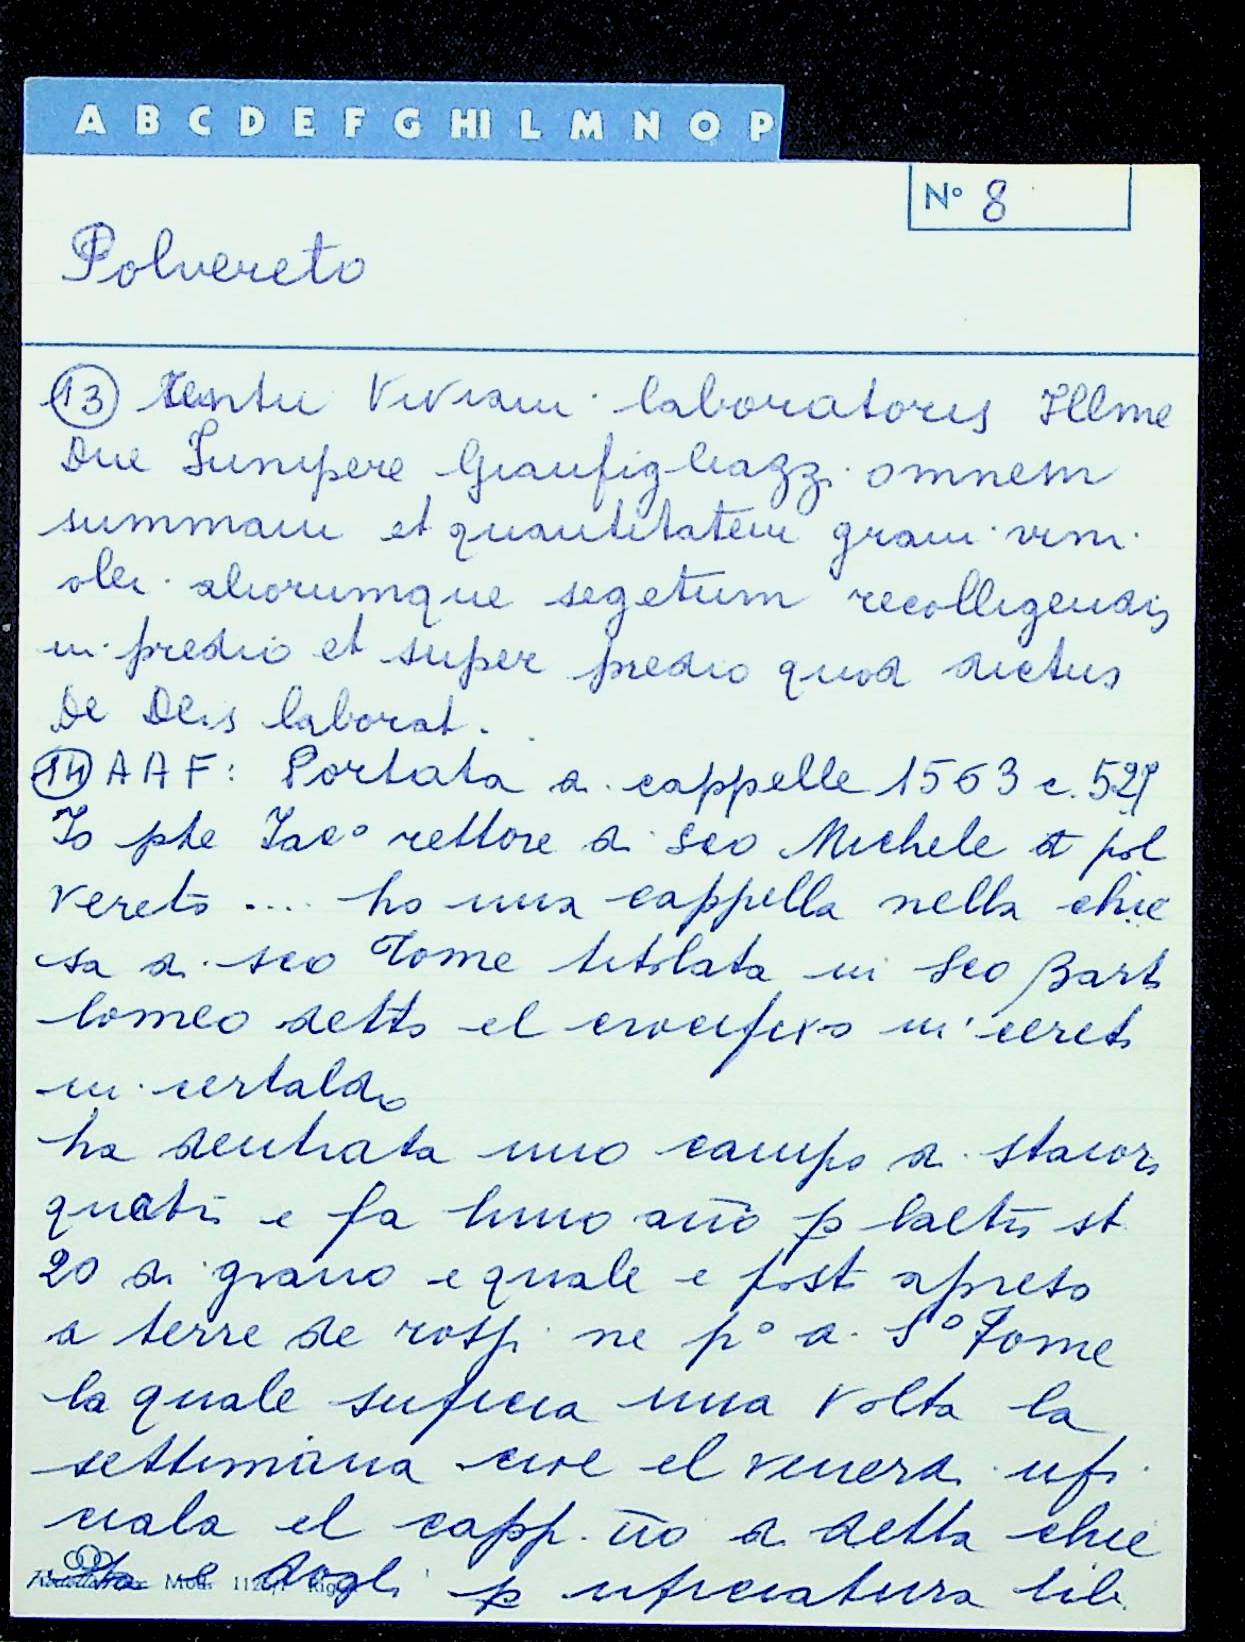 A B C D E F G HI L M N O P
N° 8
Polvereto
13 Viviani laboratoris Illme
Dne Junipere Gianfigliazzi omnem
summam et quantitatem grani vini
olei aliorumque segetum recolligendis
in predio et super predio quod dictus
De Deis laborat.
14 AAF: Portata di cappelle 1563 c.
Io pte Iac° rettore di Sco Michele a pol
vereto .... ho una cappella nella chie
sa di sco Tome titolata in Sco Barto
lomeo detto el crocifixo in cereto
in certaldo
ha dentrata uno campo di staiori
quatro e fa luno año p laltro st
20 di grano e quale e posto apreso
a terre de rosp. ne p° di S° Tome
la quale suficia una volta la
settimana cioe el venerdi ufi
ciala el capp. ño di detta chie
sa e dogli p uficiatura lib.
Mod.